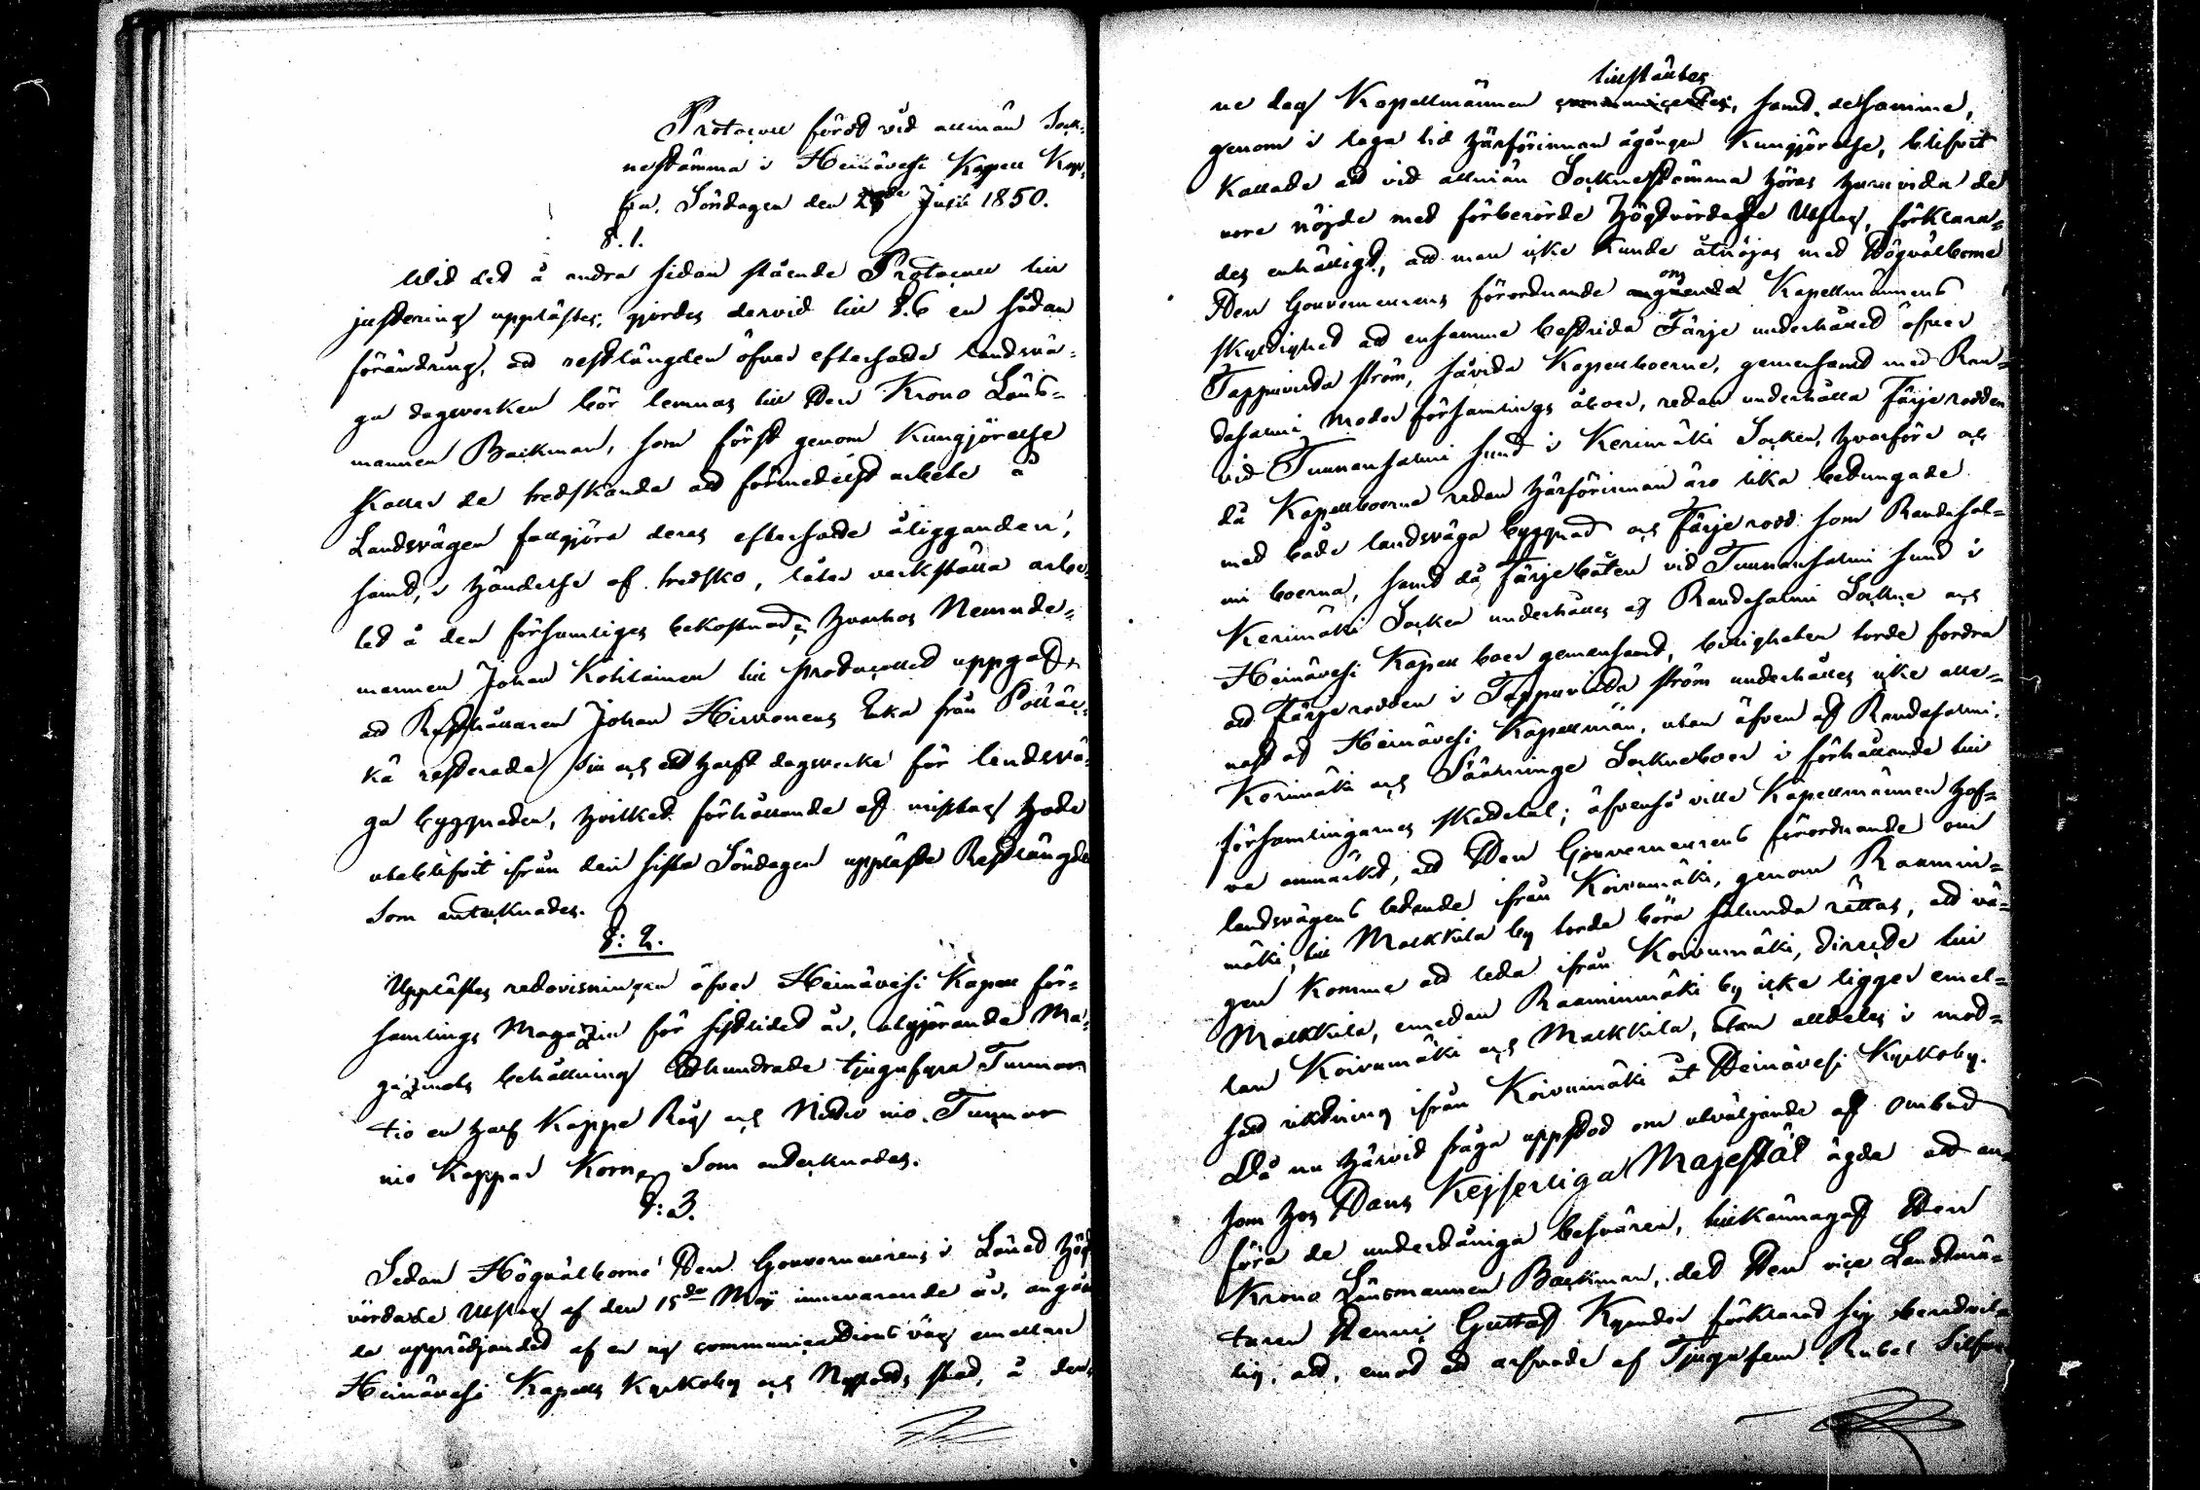 Protocoll fördt vid allmän Sock-
nestämma i Heinävesi Kapell Kyr-
ka, Söndagen den Julii 1850.
§. 1.
Wid det å andra sidan stående Protocoll till
justering upplästes, gjordes dervid till §. 6 en sådan
förändring, att restlängden öfver eftersatte landsvä-
ga dagsverken bör lemnas till Herr Krono Läns-
mannen Backman, som först genom Kungjörelse
kallar de tredskande att förmedelst arbete å
Landsvägen fullgöra deras eftersatte åligganden,
samt, i händelse af tredsko, låter verkställa arbe-
tet å den försumliges bekostnad; hvarhos Nemnde-
mannen Johan Kohlainen till protocollet uppgaf,
att Rusthållaren Johan Hirvonens Enka från Pölläk-
kä resterade Siu och ett halft dagsverke för landsvä-
ga byggnaden, hvilket förhållande af misstag hade
uteblifvit ifrån den sista Söndagen upplästa Restlängde
Som antecknades.
§: 2.
Upplästes redovisningen öfver Heinävesi Kapell för-
samlings Magazin för sistlidet år, utgörande Ma-
gazinets behållning Etthundrade tjugufyra Tunnor
tio en half Kappe Råg och Nittio nio Tunnor
nio Kappar Korn; Som antecknades.
§: 3.
Sedan Högvälborne Herr Gouverneurens i Länet Hög-
vördade Utslag af den 15de Maji innevarande år, angåen
de upprödjandet af en ny communications väg emellan
Heinävesi Kapells Kyrkoby och Nyslotts stad, å den-
ne dag Kapellmännen communicerades, samt desamme,
tillställtes
genom i laga tid härförinnan ågången Kungjörelse, blifvit
kallade att vid allmän Sockenstämma höras huruvida de
vore nöjde med förberörde Högtvördade Utslag, förklara-
des enhälligt, att man icke kunde åtnöjas med Högvälborne
Herr Gouverneurens förordnande angående Kapellmännens
om
skyldighet att ensamme bestrida Färje underhållet öfver
Tappuvirta ström, såvida Kapellboerne, gemensamt med Ran-
dasalmi moder församlings åboer, redan underhålla Färjerodden
vid Tunnansalmi sund i Kerimäki Socken, hvarföre och
då Kapellboerne redan härförinnan äro lika betungade
med både landsväga byggnad och Färjerodd som Randasal-
mi boerna, samt då Färjebåten vid Tunnansalmi sund i
Kerimäki Socken underhålles af Randasalmi Sockne och
Heinävesi Kapell boer gemensamt, billigheten torde fordra
att Färjerodden i Tappuvirta ström underhålles icke alle-
nast af Heinävesi Kapellmän, utan äfven af Randasalmi,
Kerimäki och Säåminge Sockneboer i förhållande till
församlingarnes skattetal; äfvenså ville Kapellmännen haf-
va anmärkt, att Herr Gouverneurens förordnande om
landsvägens ledande ifrån Koivumäki, genom Raamin-
mäki, till Malkkila by torde böra sålunda rättas, att vä-
gen komme att leda ifrån Koivumäki, directe till
Malkkila, emedan Raaminmäki by icke ligger emel-
lan Koivumäki och Malkkila, utan alldeles i mot-
satt riktning ifrån Koivumäki åt Heinävesi Kyrkoby.
Då nu härvid fråga uppstod om utväljande af ombud
som hos Hans Kejserliga Majestät ägde att an-
föra de underdåniga besvären, tillkännagaf Herr
Krono Länsmannen Backman, det Herr vice Landtmä-
taren Henric Gustaf Kyander förklarat sig beredvil-
lig, att, emot ett arfvode af Tjugufem Rubel Silfver